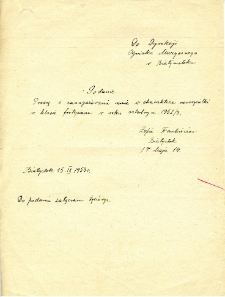 Do Dyrekcji
Ogniska Muzycznego
w Białymstoku
Podanie
Proszę o zaangażowanie mnie w charakterze nauczycielki
w klasie fortepianu w roku szkolnym 1952/3.
Zofia
Białystok
1<sup>go</sup> Maja 14
Białystok 15 IX 1953 r.
Do podania załączam życiorys.